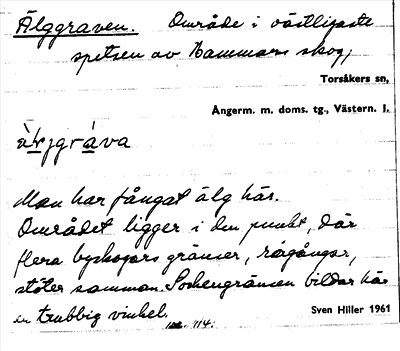 Älggraven. Område i västligaste
spetsen av Hammars skog,
Torsåkers sn,
Ångerm. m. doms. tg., Västern. l.
Man har fångat älg här.
Området ligger i den punkt, där
flera byskogars gränser, rågångar,
stöter samman. Sockengränsen bildar här
en trubbig vinkel.
Sven Hiller 1961
114.